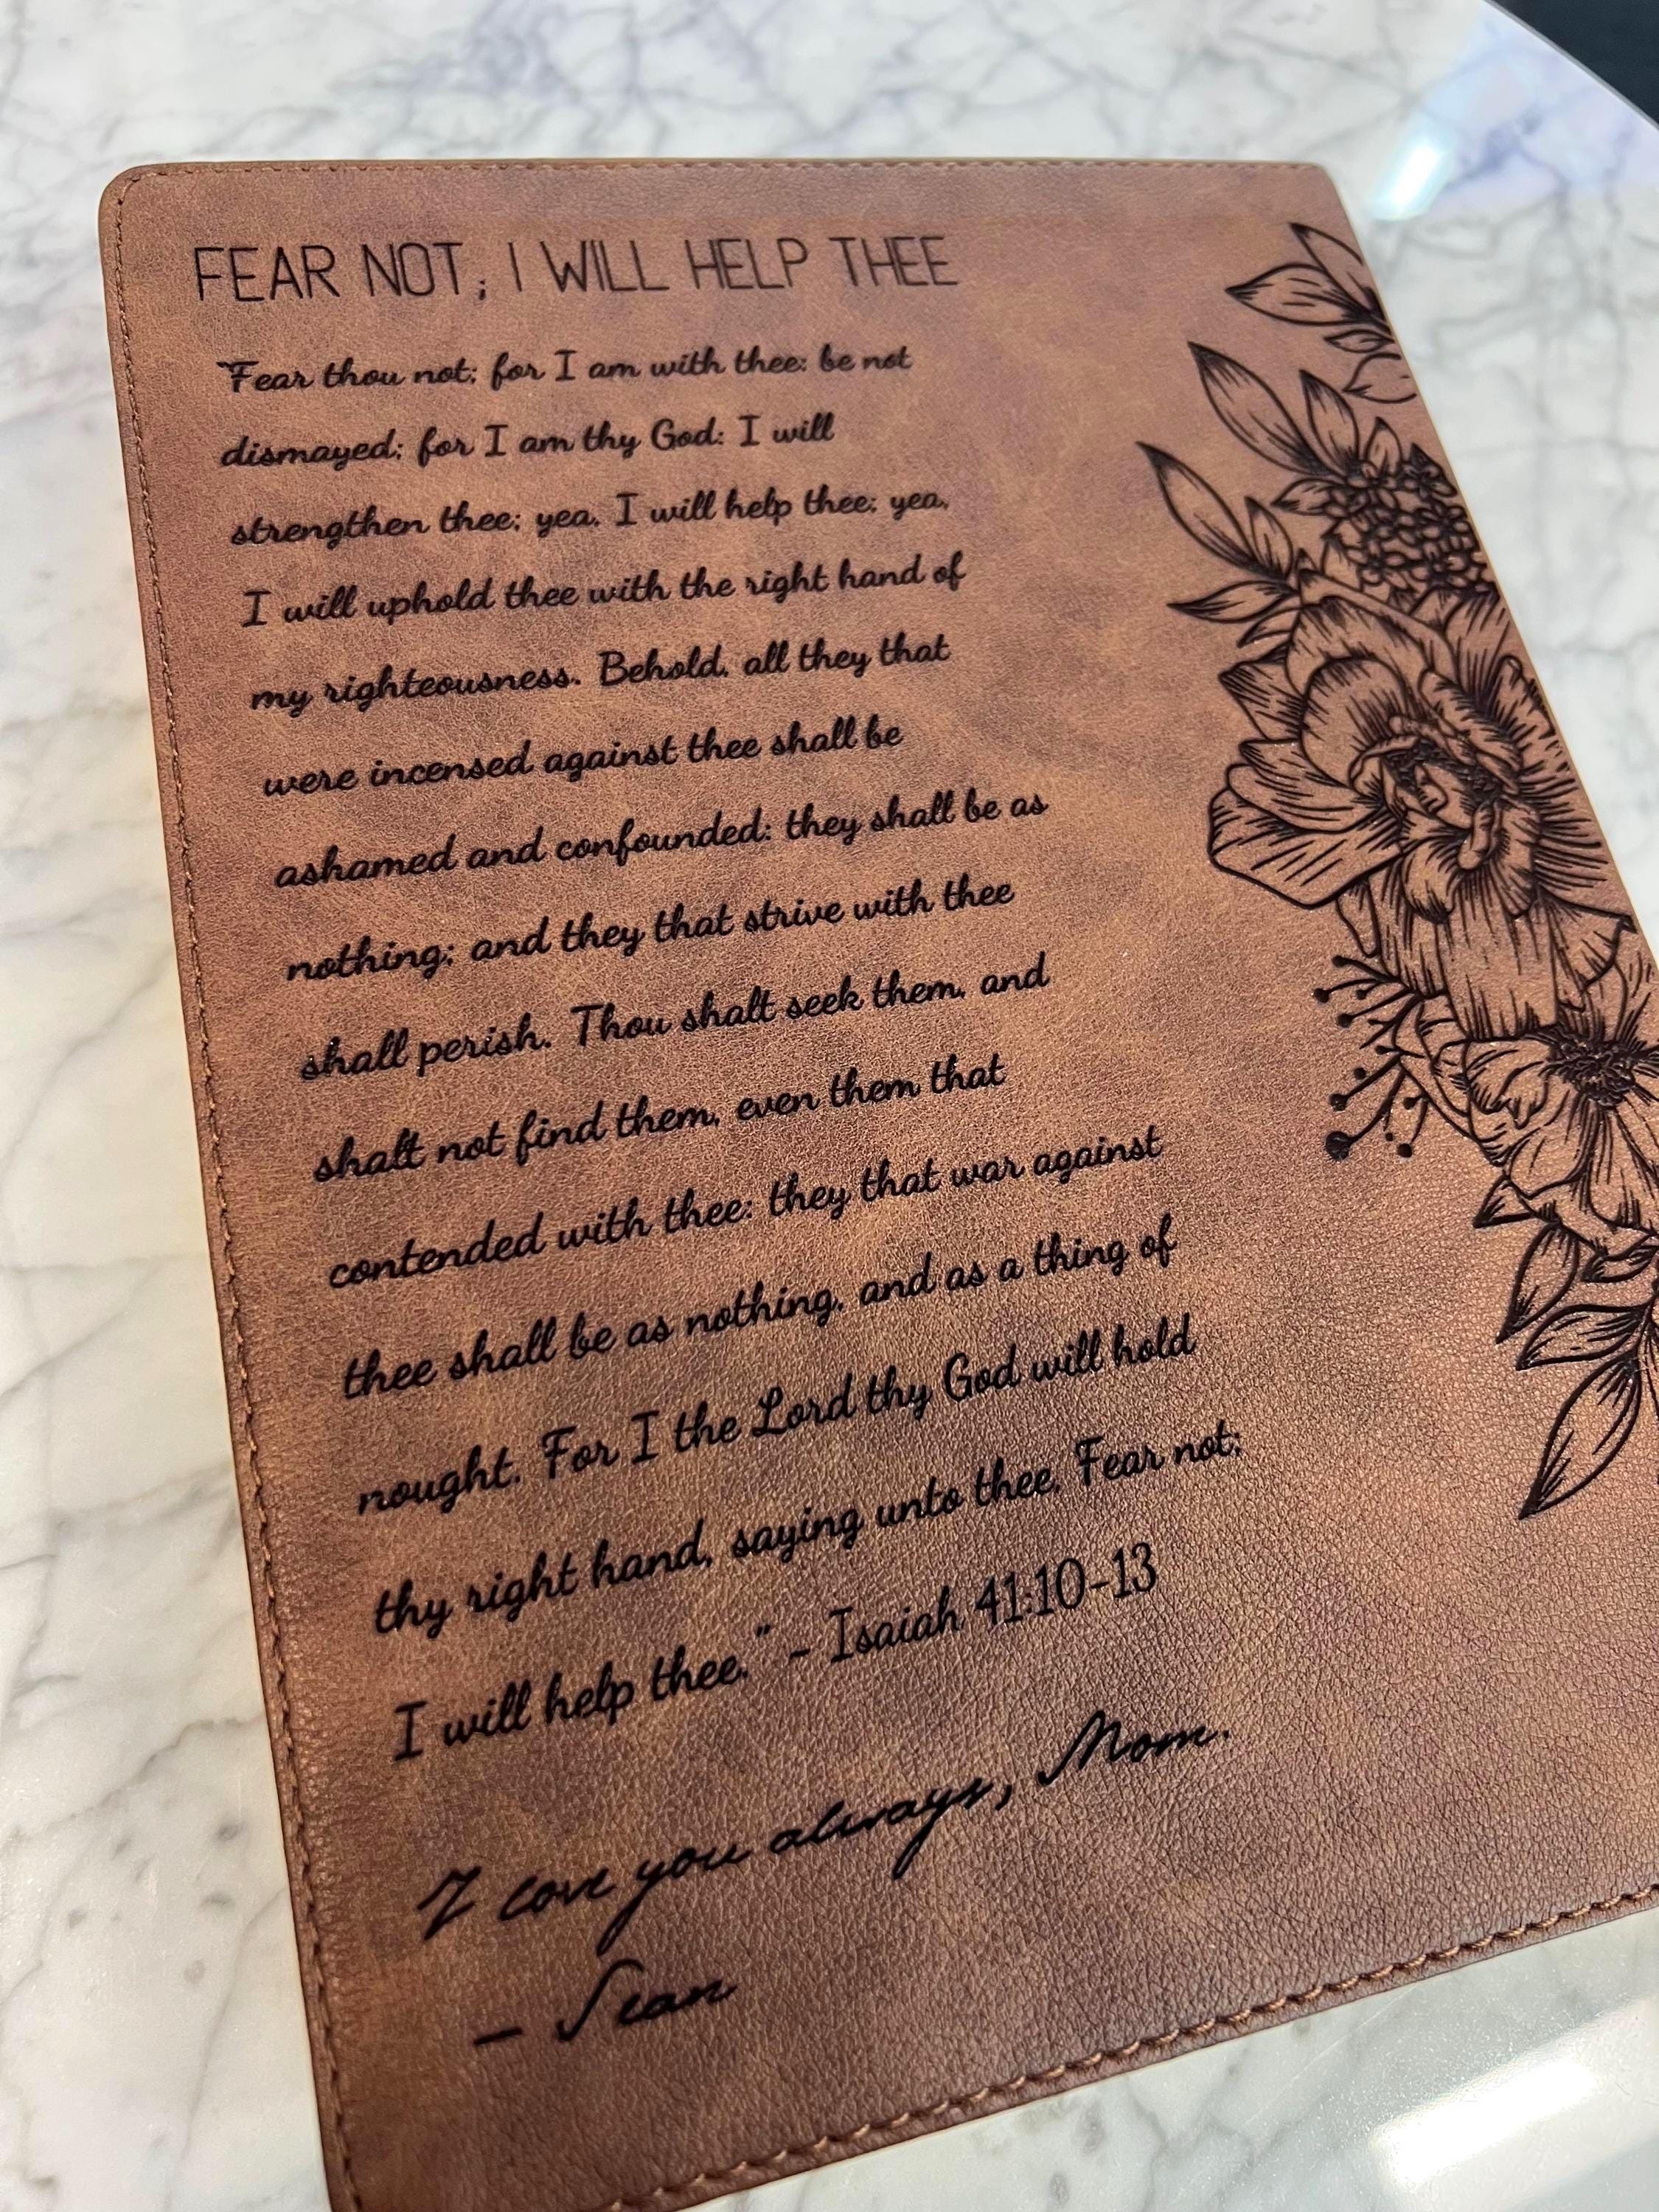 FEAR NOT; I WILL HELP THEE
"Fear thou not; for I am with thee: be not
dismayed; for I am thy God: I will
strengthen thee; yea, I will help thee; yea,
I will uphold thee with the right hand of
my righteousness. Behold, all they that
were incensed against thee shall be
ashamed and confounded: they shall be as
nothing; and they that strive with thee
shall perish. Thou shalt seek them, and
shalt not find them, even them that
contended with thee: they that war against
thee shall be as nothing, and as a thing of
nought. For I the Lord thy God will hold
thy right hand, saying unto thee, Fear not;
I will help thee." - Isaiah 41:10-13
I love you always, Mom.
- Sean